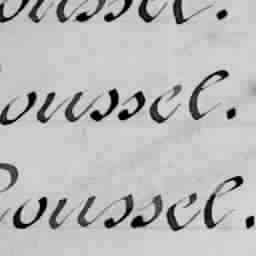 oussel.
oussel.
Roussel.